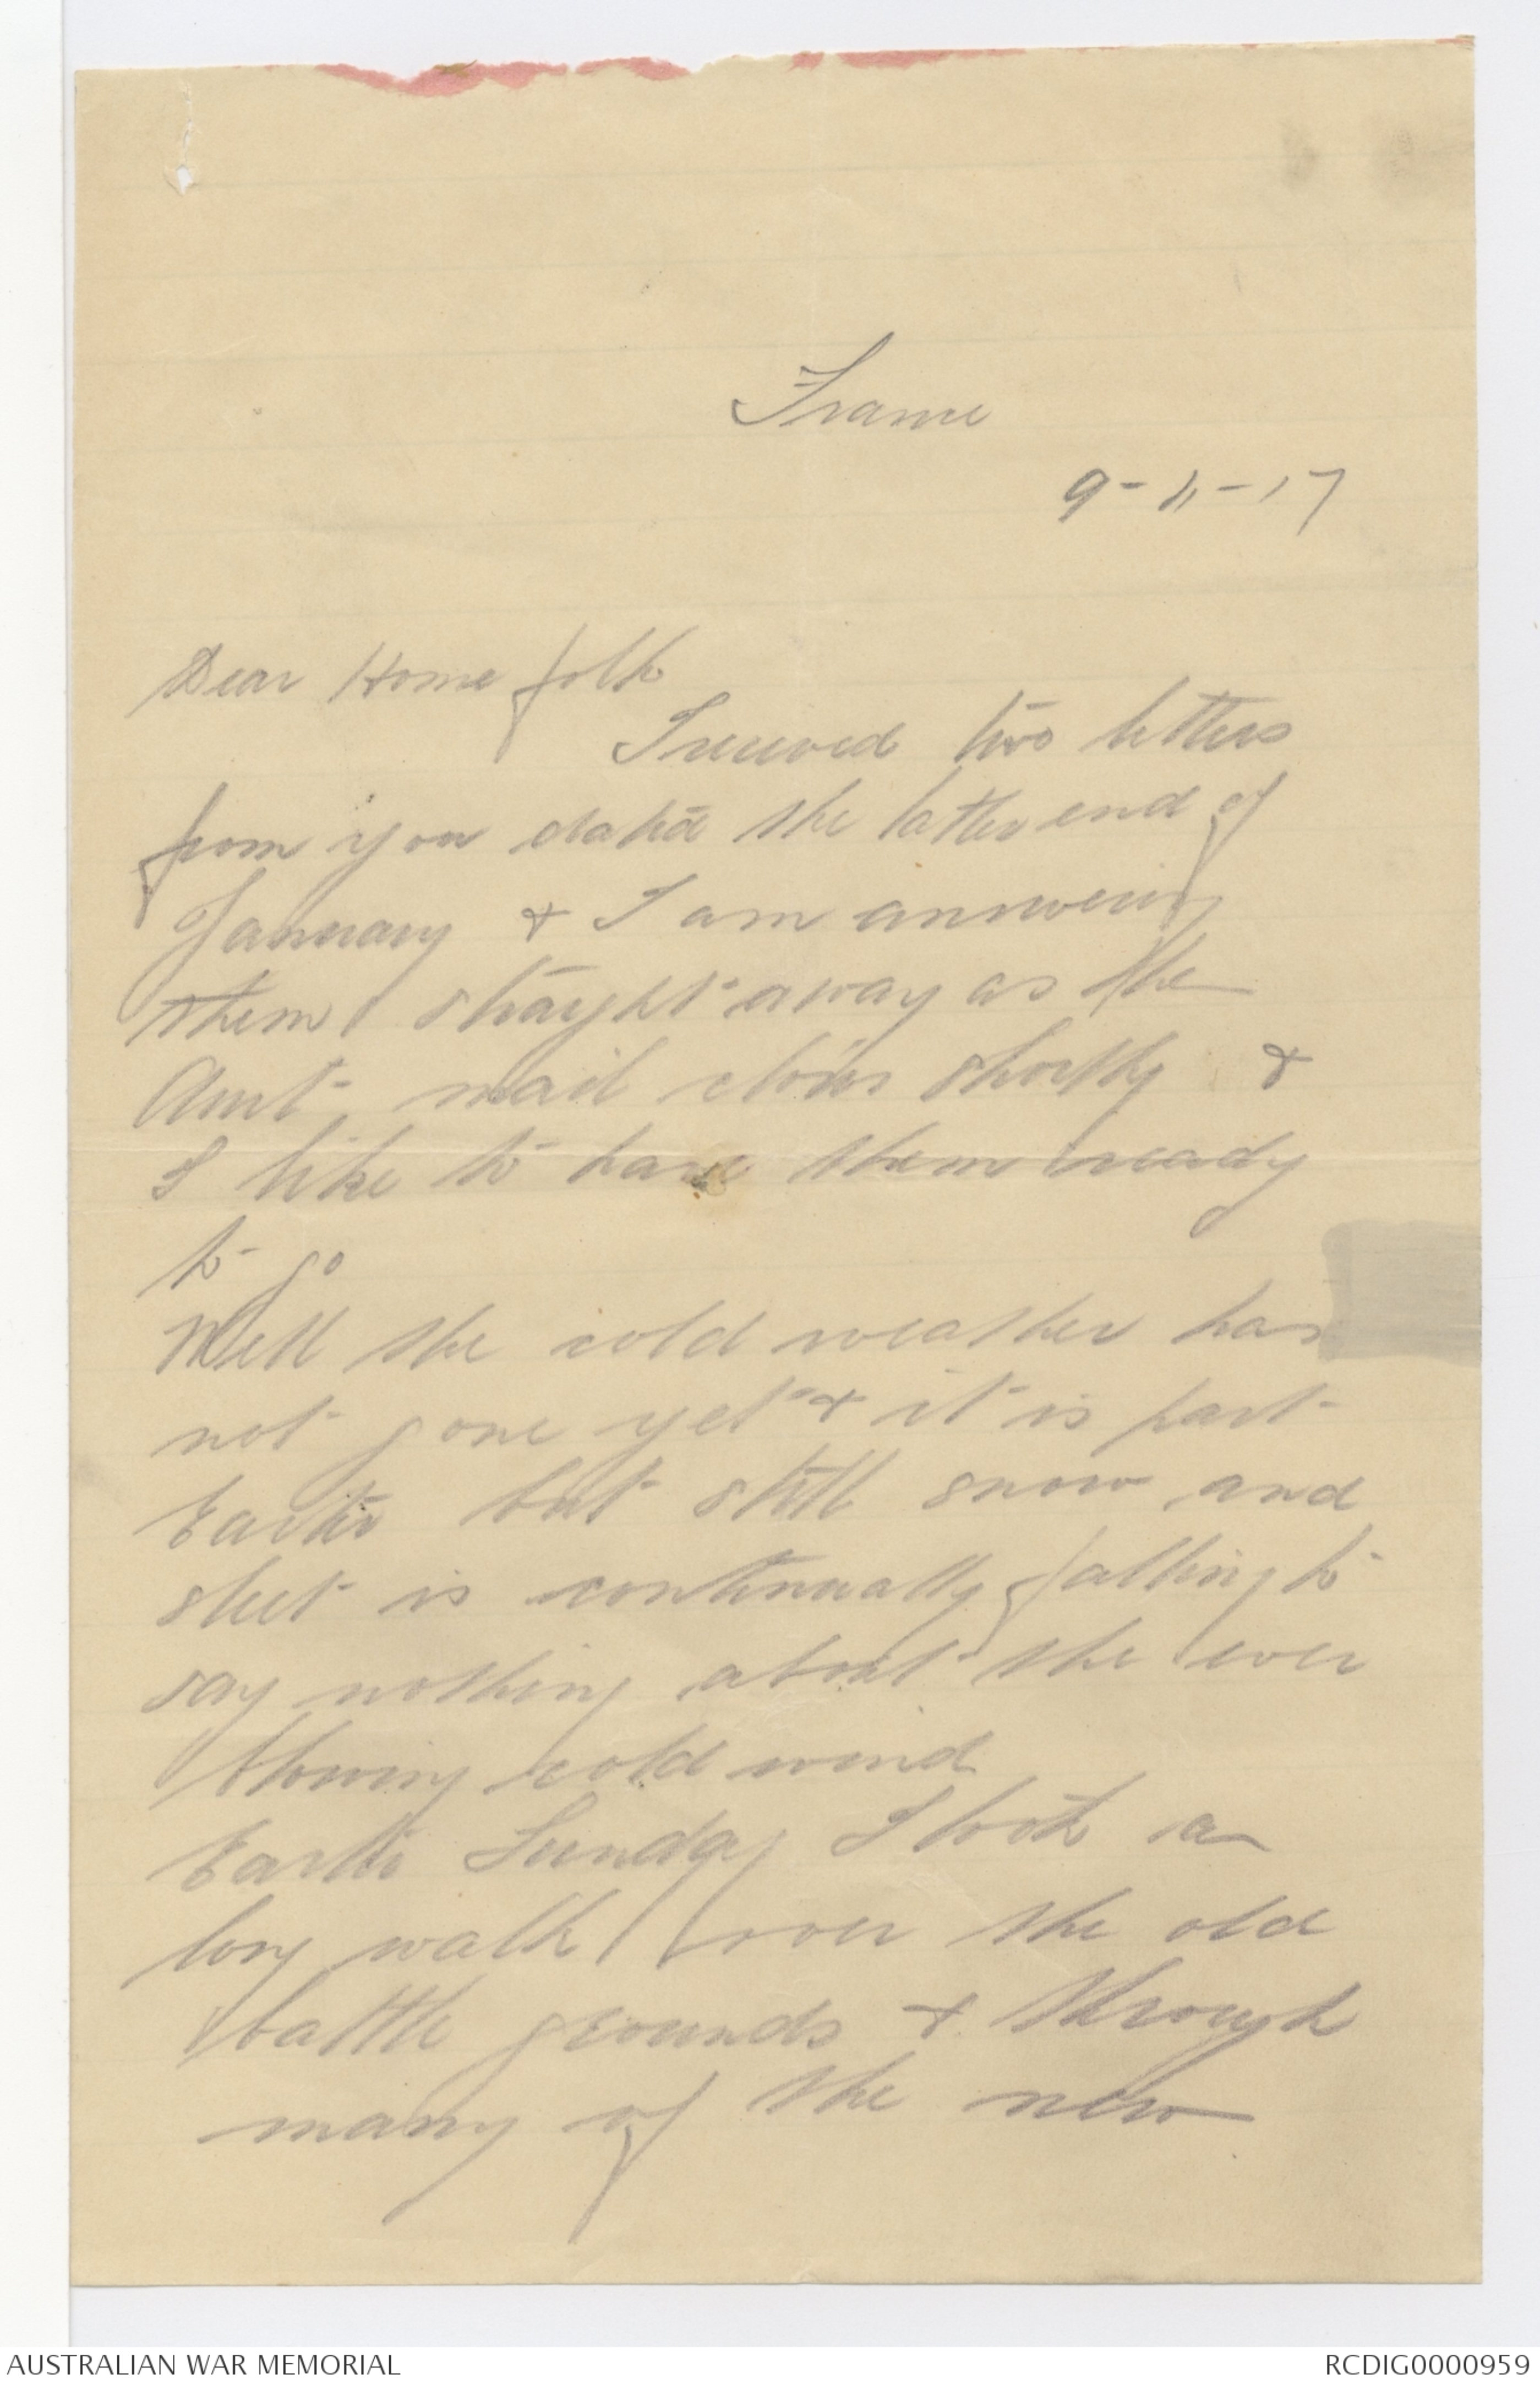 France
9-11-17
Dear Home folk
I received two letters
from you dated the latter end of
January & I am answering
them straight away as the
Aust. mail closes shortly &
I like to have them ready
to go
Well the cold weather has
not gone yet & it is past
Easter but still snow and
sleet is continually falling to
say nothing about the ever
blowing cold wind
Easter Sunday I took a
long walk over the old
battle grounds & through
many of the new
AUSTRALIAN WAR MEMORIAL
RCDIG0000959